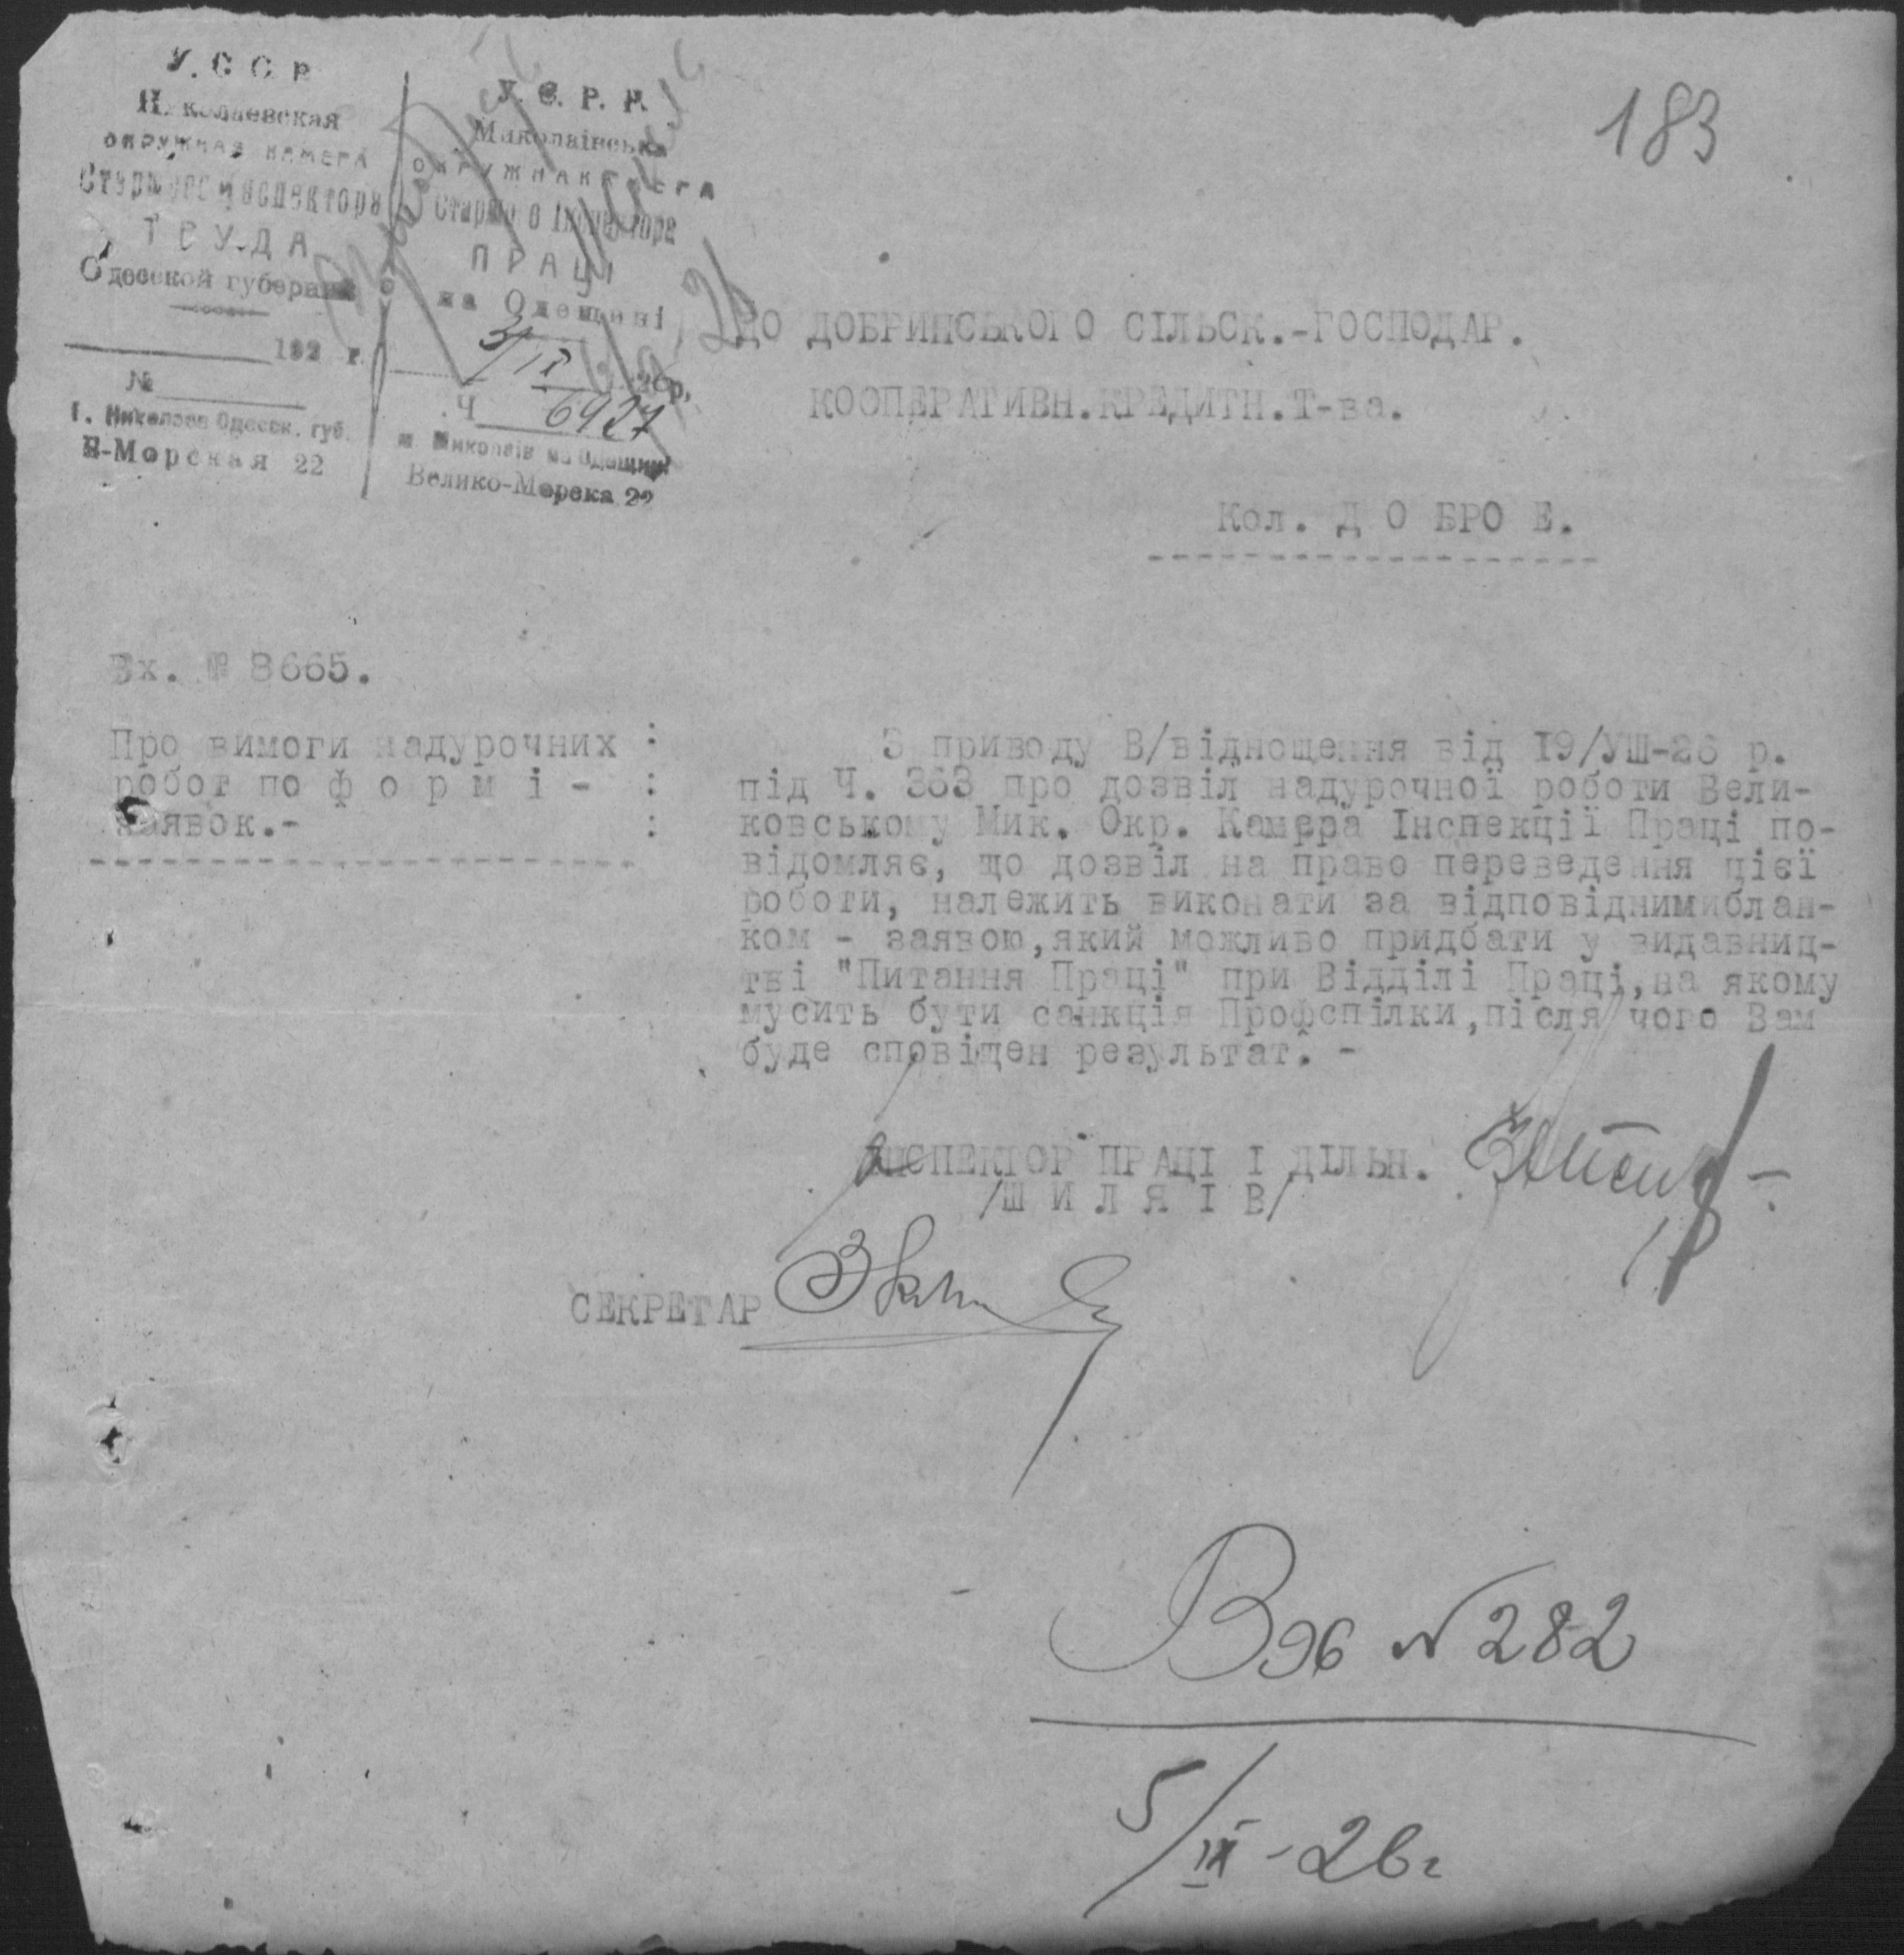 183
У. С. С. Р.
Николаевская
ОКРУЖНАЯ КАМЕРА
Старшего Инспектора
ТРУДА
Одесской губернии
192 г.
№
г. Николаев Одесск. губ.
В-Морская 22
У. С. Р. Р.
Миколаївська
ОКРУЖНА КАМЕРА
Старшого Інспектора
ПРАЦІ
на Одещині
3/IX 26 р.
Ч 6927
м. Миколаїв на Одещині
Велико-Морска 22
ДО ДОБРИНСЬКОГО СІЛЬСК.-ГОСПОДАР.
КООПЕРАТИВН.КРЕДИТН.Т-ва.
Кол. Д О БРО Е.
Вх. № 8665.
Про вимоги надурочних :
робот по ф о р м і - :
заявок.- :
З приводу В/відношення від I9/УШ-26 р.
під Ч. 363 про дозвіл надурочної роботи Вели-
ковському Мик. Окр. Камера Інспекції Праці по-
відомляє, що дозвіл на право переведення цієї
роботи, належить виконати за відповіднимиблан-
ком - заявою,який можливо придбати у видавниц-
тві "Питання Праці" при Відділі Праці,на якому
мусить бути санкція Профспілки,після чого Вам
буде сповіщен результат. -
ІНСПЕКТОР ПРАЦІ І ДІЛЬН.
/Ш И Л Я І В/
СЕКРЕТАР
№ 282
5/IX-26г